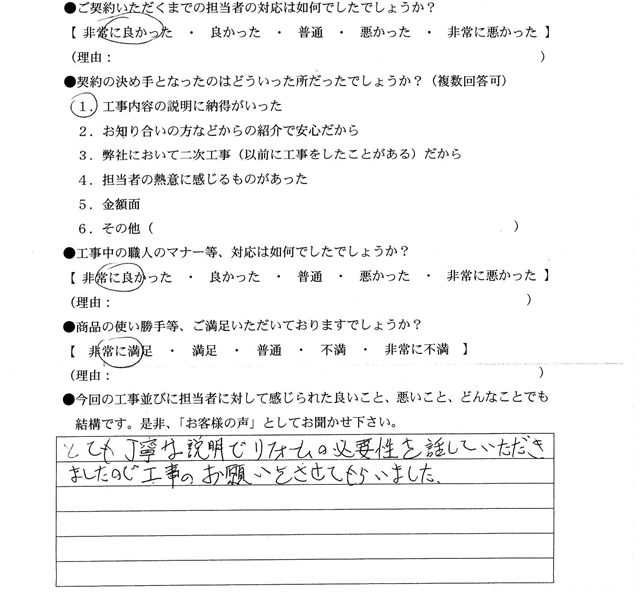 ●ご契約いただくまでの担当者の対応は如何でしたでしょうか？
【 非常に良かった ・ 良かった ・ 普通 ・ 悪かった ・ 非常に悪かった 】
（理由： ）
●契約の決め手となったのはどういった所だったでしょうか？（複数回答可）
１．工事内容の説明に納得がいった
２．お知り合いの方などからの紹介で安心だから
３．弊社において二次工事（以前に工事をしたことがある）だから
４．担当者の熱意に感じるものがあった
５．金額面
６．その他（ ）
●工事中の職人のマナー等、対応は如何でしたでしょうか？
【 非常に良かった ・ 良かった ・ 普通 ・ 悪かった ・ 非常に悪かった 】
（理由： ）
●商品の使い勝手等、ご満足いただいておりますでしょうか？
【 非常に満足 ・ 満足 ・ 普通 ・ 不満 ・ 非常に不満 】
（理由： ）
●今回の工事並びに担当者に対して感じられた良いこと、悪いこと、どんなことでも
結構です。是非、「お客様の声」としてお聞かせ下さい。
とても丁寧な説明でリフォームの必要性を話していただき
ましたので工事のお願いをさせてもらいました。